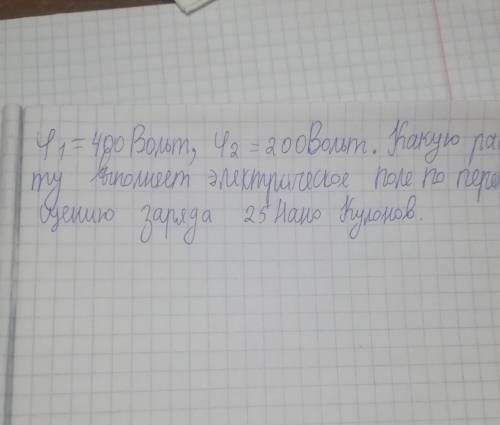 φ₁ = 400 Вольт, φ₂ = 200 Вольт. Какую ра
ту выполняет электрическое поле по пере
щению заряда 25 Нано Кулонов.